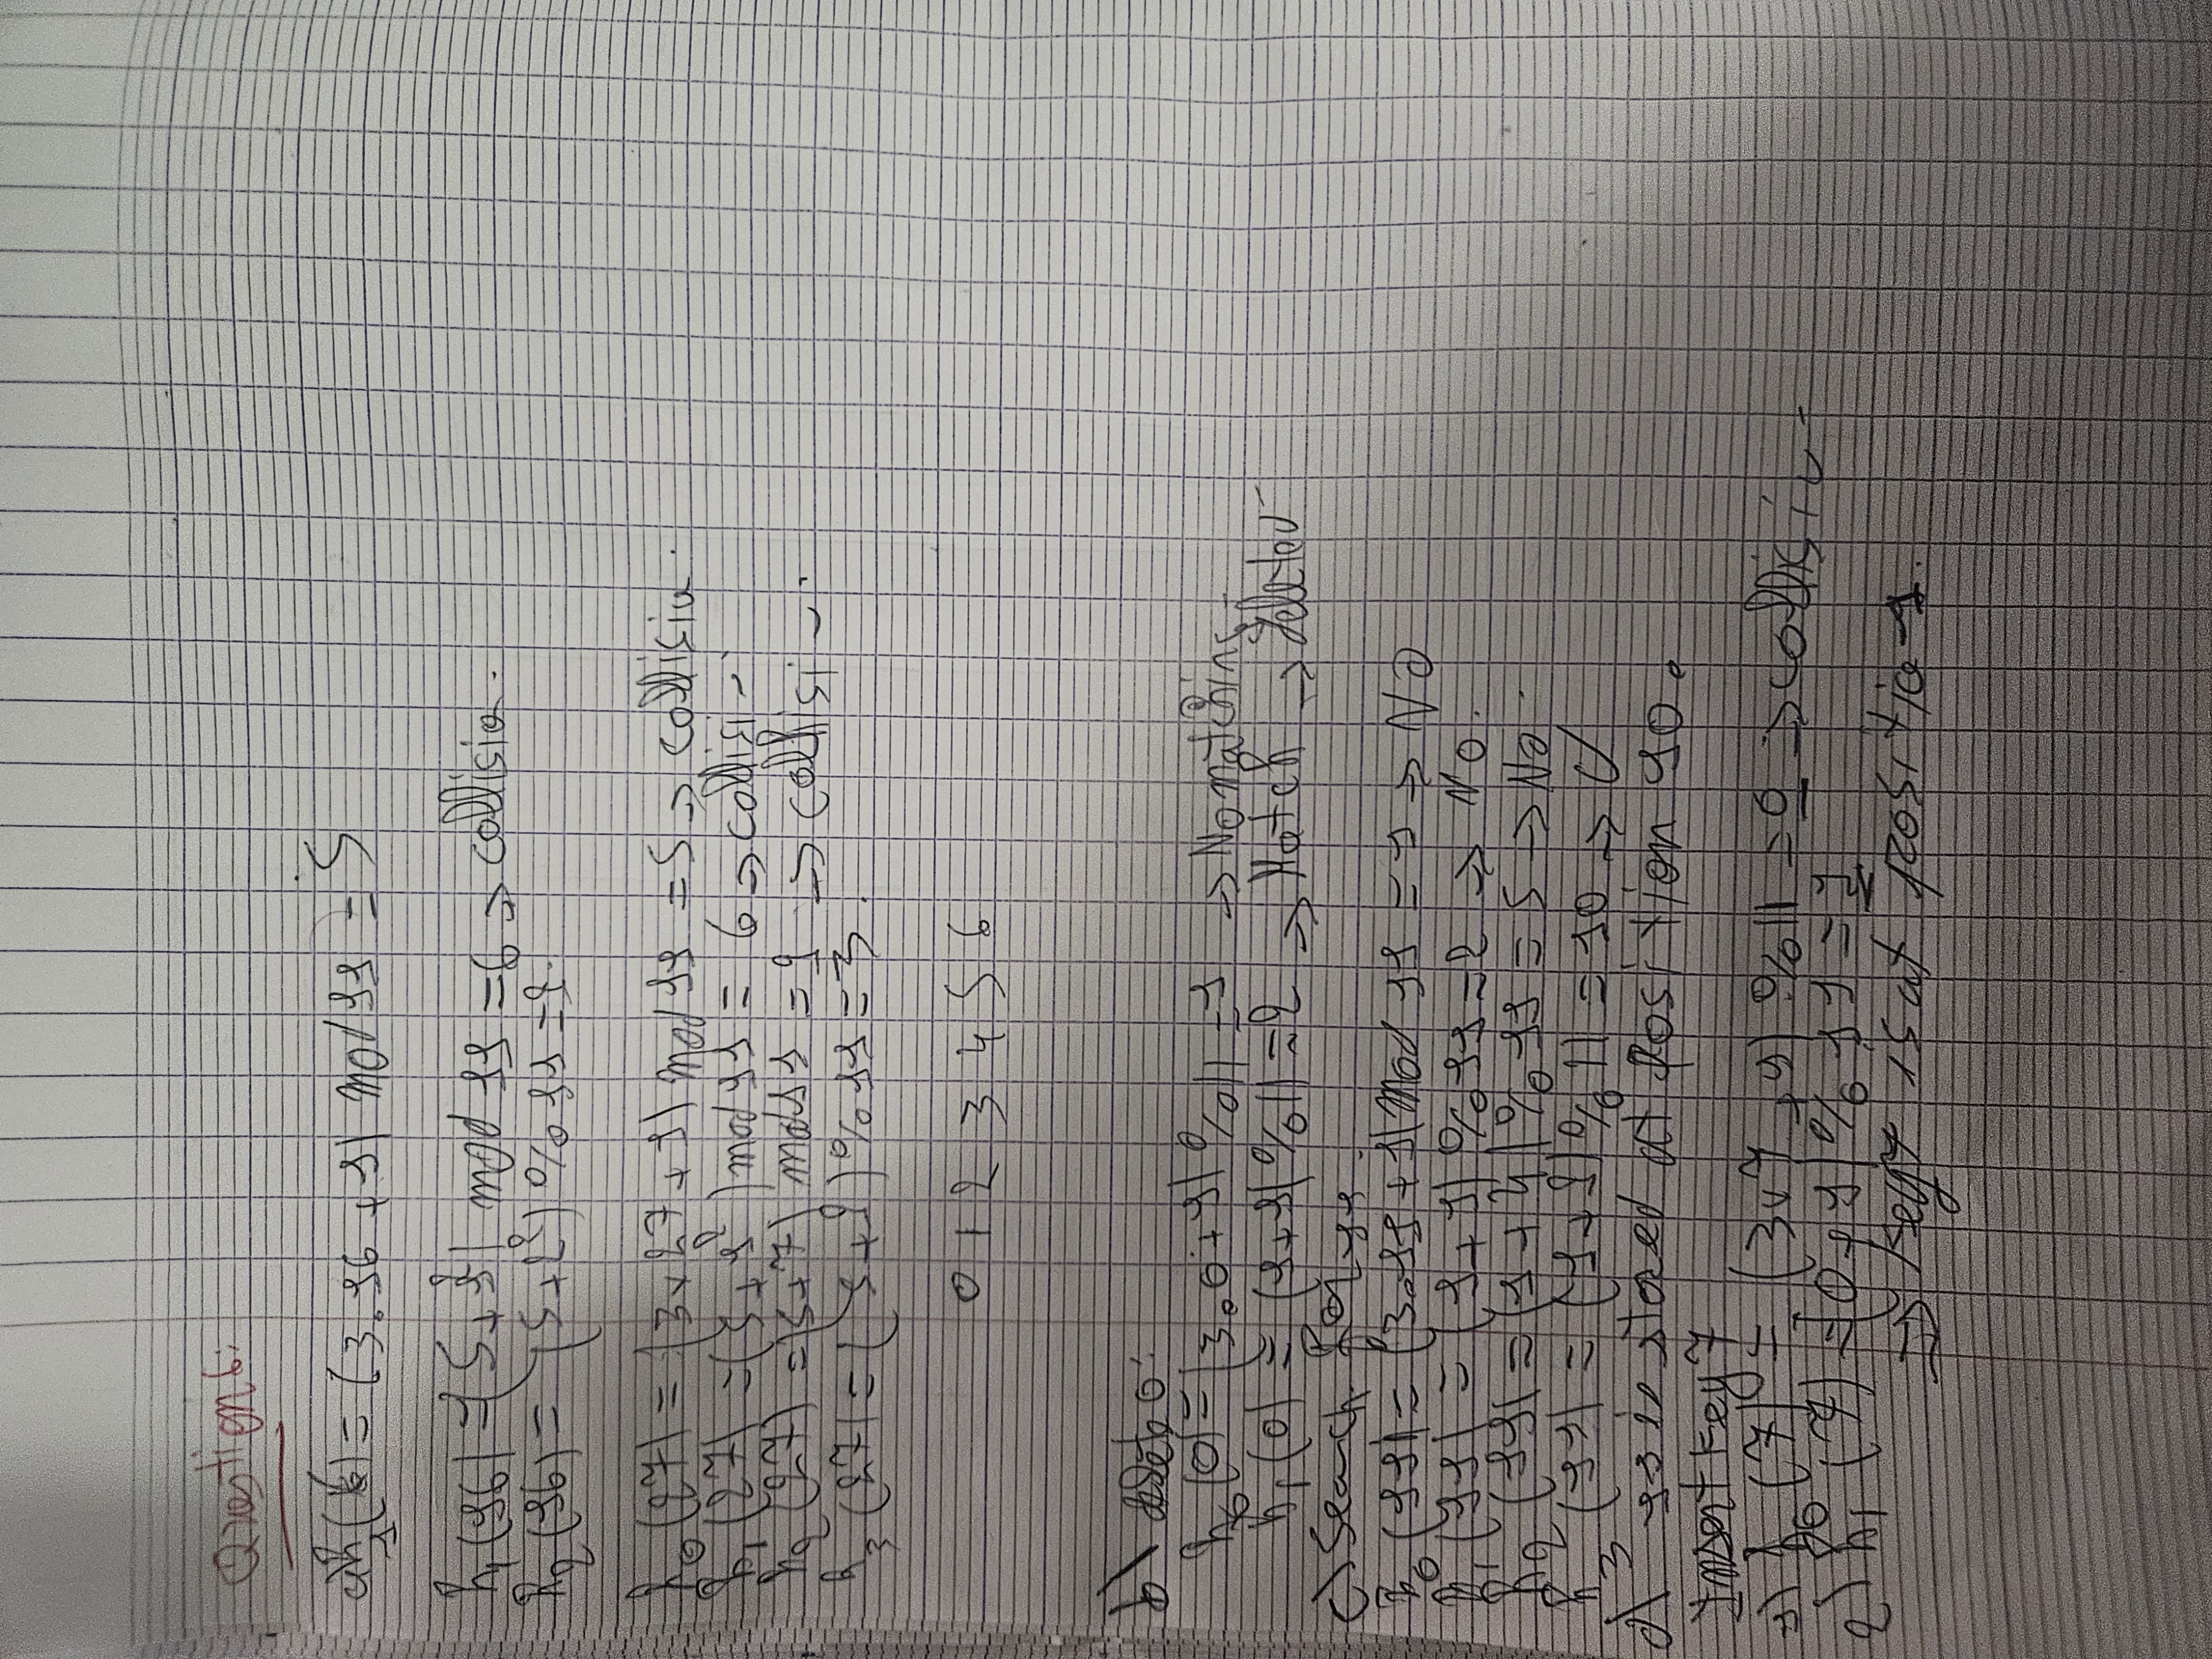 Question 6:
a) h(16) = (3.16 + 1) mod 11 = 5
h1(16) = (5+1²) mod 11 = 6 → collision.
h2(16) = (5+2²) % 11 = 9.
h0(27) = (3x27 +1) mod 11 = 5 → collision.
h1(27) = (5+1²) mod 11 = 6 → collision
h2(27) = (5+2²) mod 11 = 9 → collision.
h3(27) = (5+9) % 11 = 3.
0 1 2 3 4 5 6
b) delet 0:
h0(0) = (3.0+1) % 11 = 1 → No matching
h1(0) = (1+1) % 11 = 2 → Match → deleted
c) Search for 11.
h0(11) = (3.11+1) mod 11 = 1 → No
h1(11) = (1+1) % 11 = 2 → No.
h2(11) = (1+4) % 11 = 5 → No.
h3(11) = (1+9) % 11 = 10 →
d) 11 is stored at position 10.
Insert key 7
1) h0(7) = (3x7 + 1) % 11 = 0 → collision
2) h1(7) = (0+1) % 11 = 1
⇒ key 7 is at position 1.